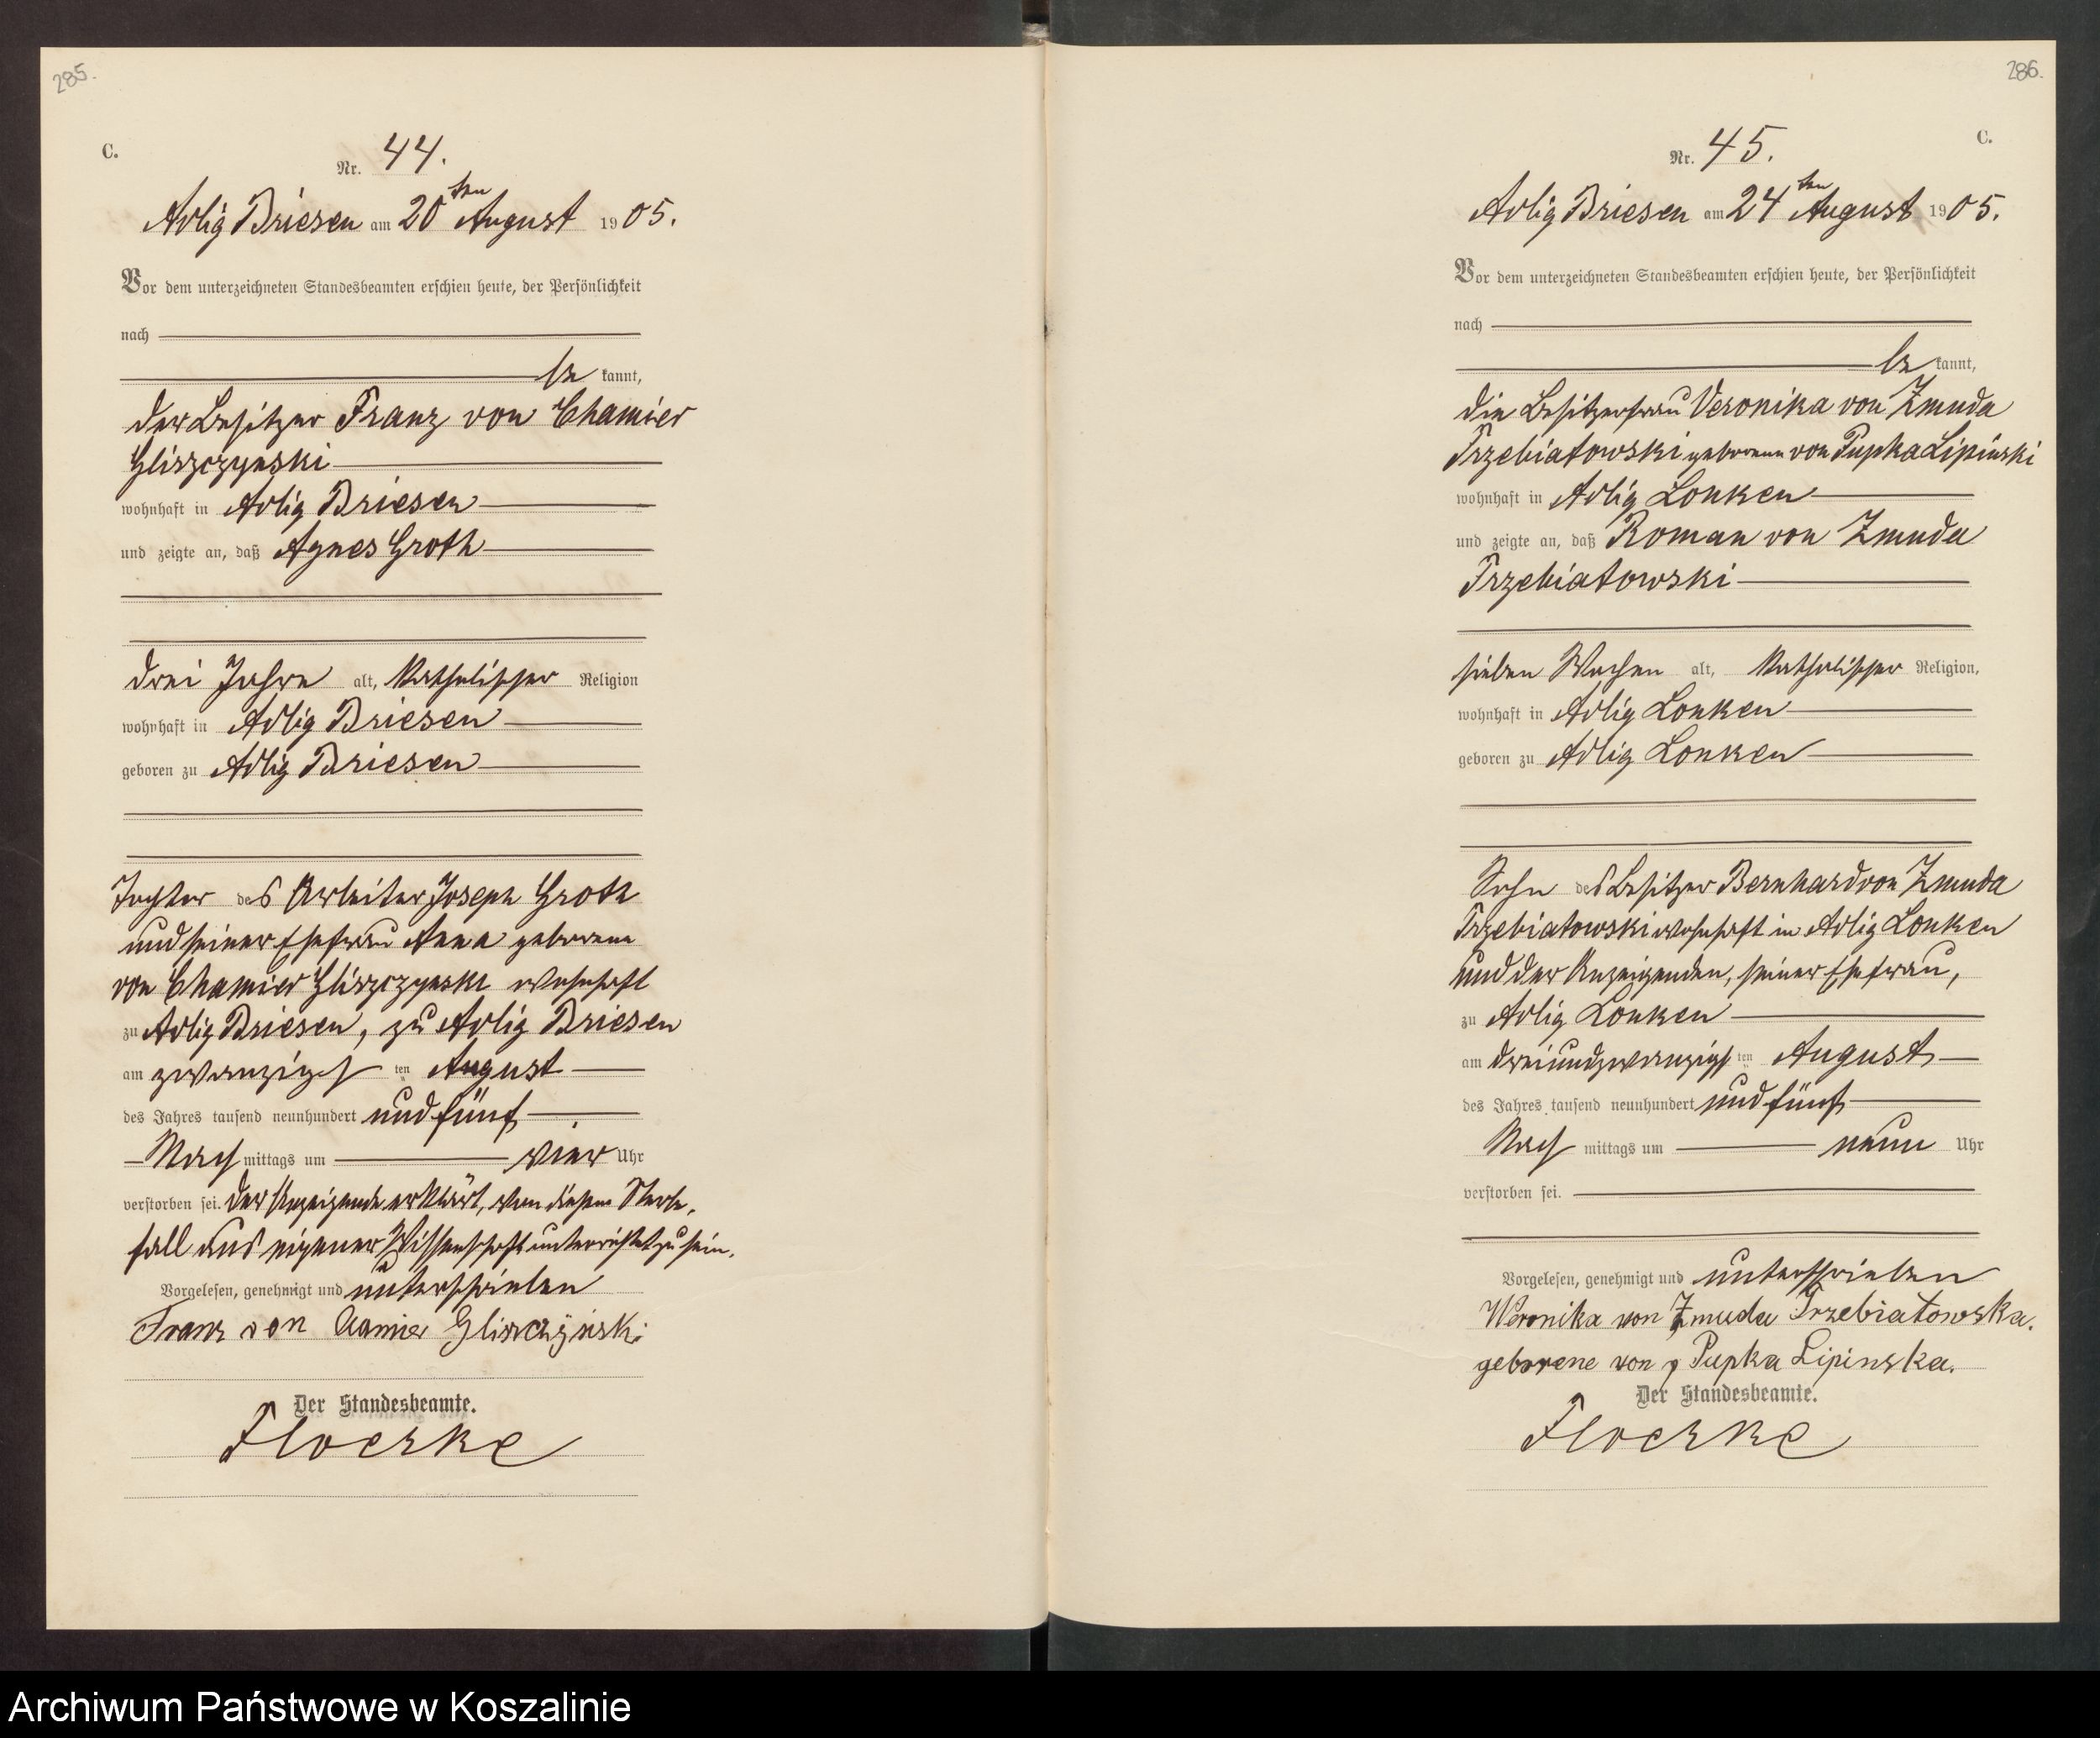 285.
C.
Nr. 44.
Adlig Briesen am 20ten August 1905.
Vor dem unterzeichneten Standesbeamten erschien heute, der Persönlichkeit
nach
be kannt,
der Besitzer Franz von Chamier
Gliszczynski
wohnhaft in Adlig Briesen
und zeigte an, daß Agnes Groth
drei Jahre alt, katholischer Religion
wohnhaft in Adlig Briesen
geboren zu Adlig Briesen
Tochter des Arbeiter Joseph Groth
und seiner Ehefrau Anna geborene
von Chamier Gliszczynski wohnhaft
zu Adlig Briesen, zu Adlig Briesen
am zwanzigs ten August
des Jahres tausend neunhundert und fünf
Nach mittags um vier Uhr
verstorben sei. Der Anzeigende erklärt, von diesem Sterbe-
fall aus eigener Wissenschaft unterrichtet zu sein.
Vorgelesen, genehmigt und unterschrieben
Franz von Camier Gliszczyński
Der Standesbeamte.
Floerke
286.
C.
Nr. 45.
Adlig Briesen am 24ten August 1905.
Vor dem unterzeichneten Standesbeamten erschien heute, der Persönlichkeit
nach
be kannt,
die Besitzerfrau Veronika von Zmuda
Trzebiatowski geborene von Pupka Lipinski
wohnhaft in Adlig Lonken
und zeigte an, daß Roman von Zmuda
Trzebiatowski
sieben Wochen alt, katholischer Religion,
wohnhaft in Adlig Lonken
geboren zu Adlig Lonken
Sohn des Besitzer Bernhard von Zmuda
Trzebiatowski wohnhaft in Adlig Lonken
und der Anzeigenden, seiner Ehefrau,
zu Adlig Lonken
am dreiundzwanzigs ten August
des Jahres tausend neunhundert und fünf
Nach mittags um neun Uhr
verstorben sei.
Vorgelesen, genehmigt und unterschrieben
Weronika von Zmuda Trzebiatowska.
geborene von Pupka Lipinska.
Der Standesbeamte.
Floerke
Archiwum Państwowe w Koszalinie